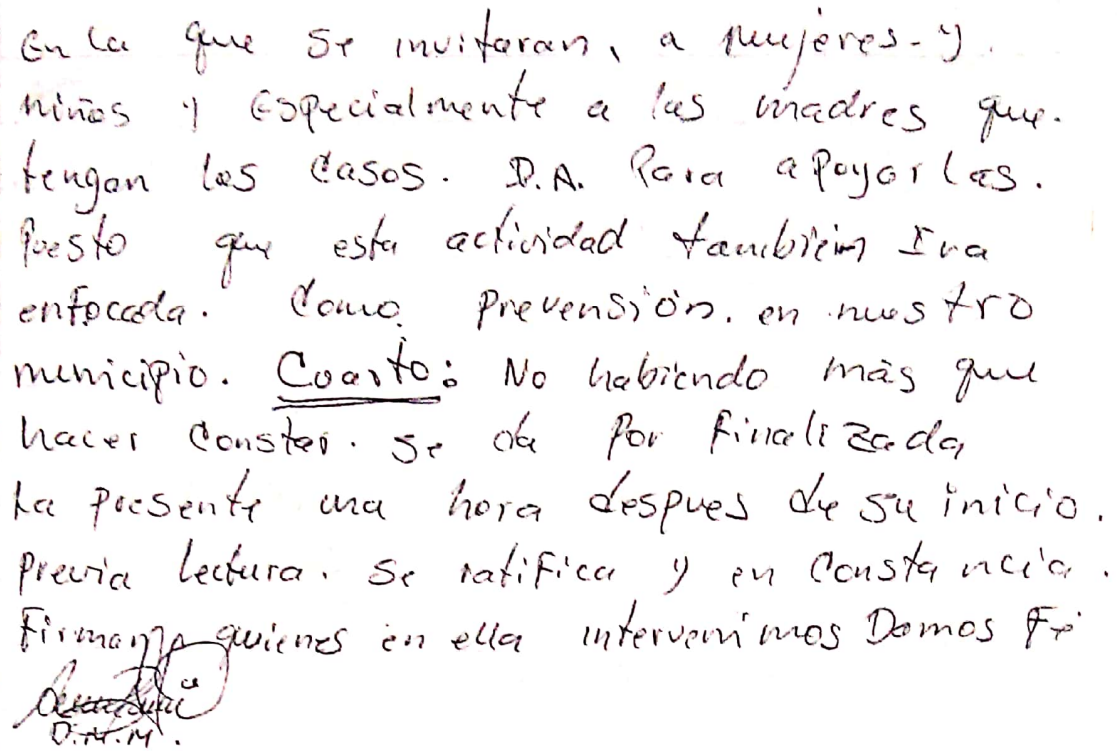 En la que se invitaran, a mujeres - y.
niños y Especialmente a las madres que.
tengan los casos. D.A. Para apoyarlas.
Puesto que esta actividad también Ira
enfocada. Como Prevensión. en nuestro
municipio. Cuarto: No habiendo más que
hacer constar. se da Por finalizada
La presente una hora despues de su inicio.
Previa Lectura. se ratifica y en Constancia.
Firmamos quienes en ella intervenimos Damos Fé
D.M.M.